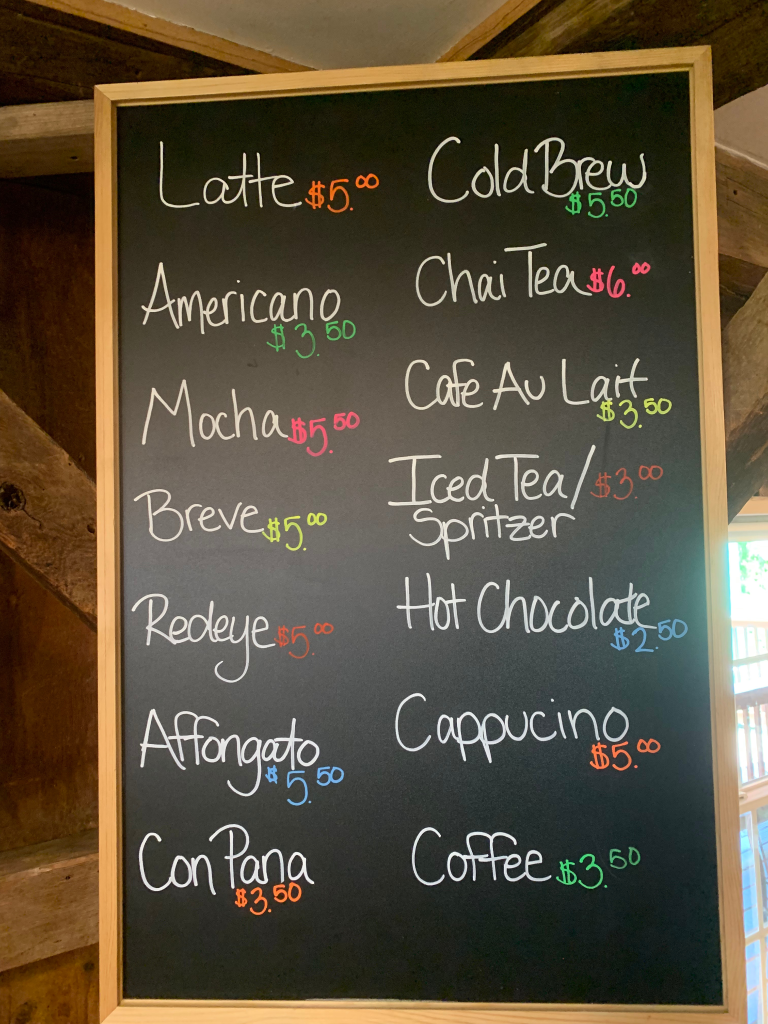 Latte $5.00
Americano
$3.50
Mocha $5.50
Breve $5.00
Redeye $5.00
Affongato
$5.50
Con Pana
$3.50
Cold Brew
$5.50
Chai Tea $6.00
Cafe Au Lait
$3.50
Iced Tea/ $3.00
Spritzer
Hot Chocolate
$2.50
Cappucino
$5.00
Coffee $3.50